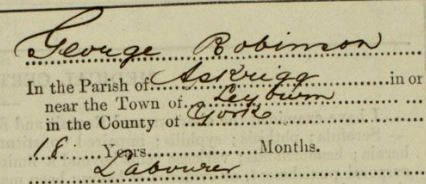 George Robinson
In the Parish of Askrigg in or
near the Town of Leyburn
in the County of York
18 Years Months.
Labourer